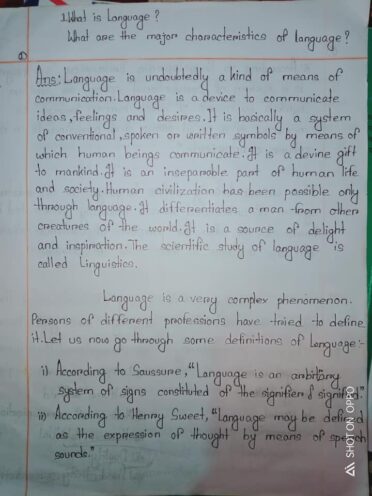 1. What is Language?
What are the major characteristics of language?
Ans: Language is undoubtedly a kind of means of
communication. Language is a device to communicate
ideas, feelings and desires. It is basically a system
of conventional, spoken or written symbols by means of
which human beings communicate. It is a devine gift
to mankind. It is an inseparable part of human life
and society. Human civilization has been possible only
through language. It differentiates a man from other
creatures of the world. It is a source of delight
and inspiration. The scientific study of language is
called Linguistics.
Language is a very complex phenomenon.
Persons of different professions have tried to define
it. Let us now go through some definitions of Language:-
i) According to Saussure, "Language is an arbitrary
system of signs constituted of the signifier & signified."
ii) According to Henry Sweet, "Language may be defined
as the expression of thought by means of speech
sounds."
SHOT ON OPPO